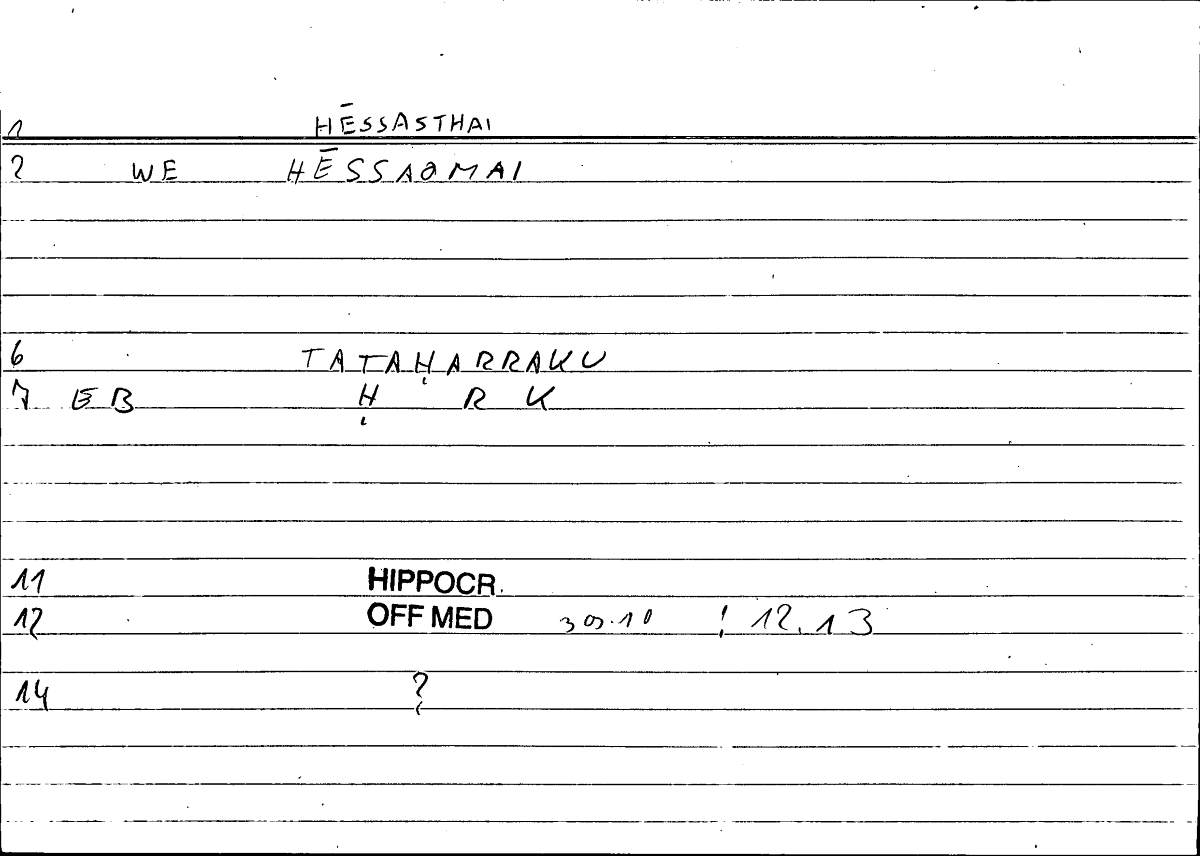 1 HĒSSASTHAI
2 WE HĒSSAOMAI
6 TATAḤARRAKU
7 EB Ḥ R K
11 HIPPOCR.
12 OFF MED 30.10 ! 12.13
14 ?